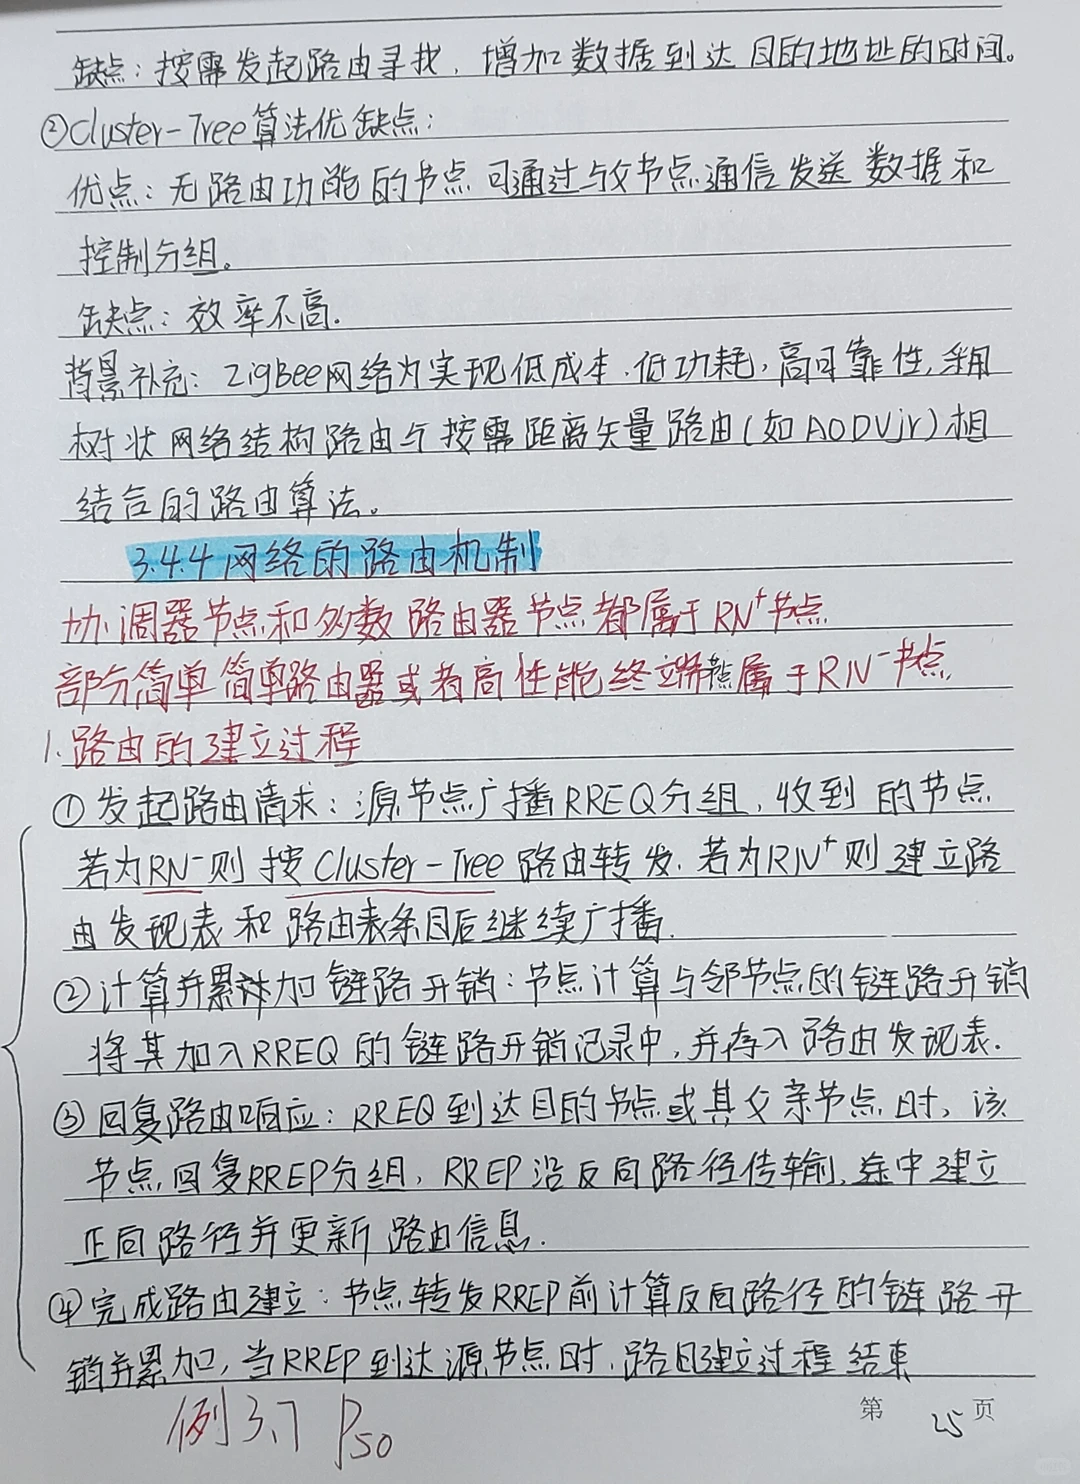 缺点：按需发起路由寻找，增加数据到达目的地址的时间。
②Cluster-Tree算法优缺点：
优点：无路由功能的节点可通过与父节点通信发送数据和
控制分组。
缺点：效率不高.
背景补充：ZigBee网络为实现低成本.低功耗,高可靠性,采用
树状网络结构路由与按需距离矢量路由(如AODVjr)相
结合的路由算法。
3.4.4网络的路由机制
协调器节点和多数路由器节点都属于RN⁺节点
部分简单简单路由器或者高性能终端节点属于RN⁻节点.
1.路由的建立过程
①发起路由请求：源节点广播RREQ分组,收到的节点
若为RN⁻则按Cluster-Tree路由转发.若为RN⁺则建立路
由发现表和路由表条目后继续广播.
②计算并累加链路开销：节点计算与邻节点的链路开销
将其加入RREQ的链路开销记录中,并存入路由发现表.
③回复路由响应：RREQ到达目的节点或其父亲节点时,该
节点回复RREP分组,RREP沿反向路径传输,途中建立
正向路径并更新路由信息.
④完成路由建立：节点转发RREP前计算反向路径的链路开
销并累加,当RREP到达源节点时,路由建立过程结束
例3.7 P50
第 25 页